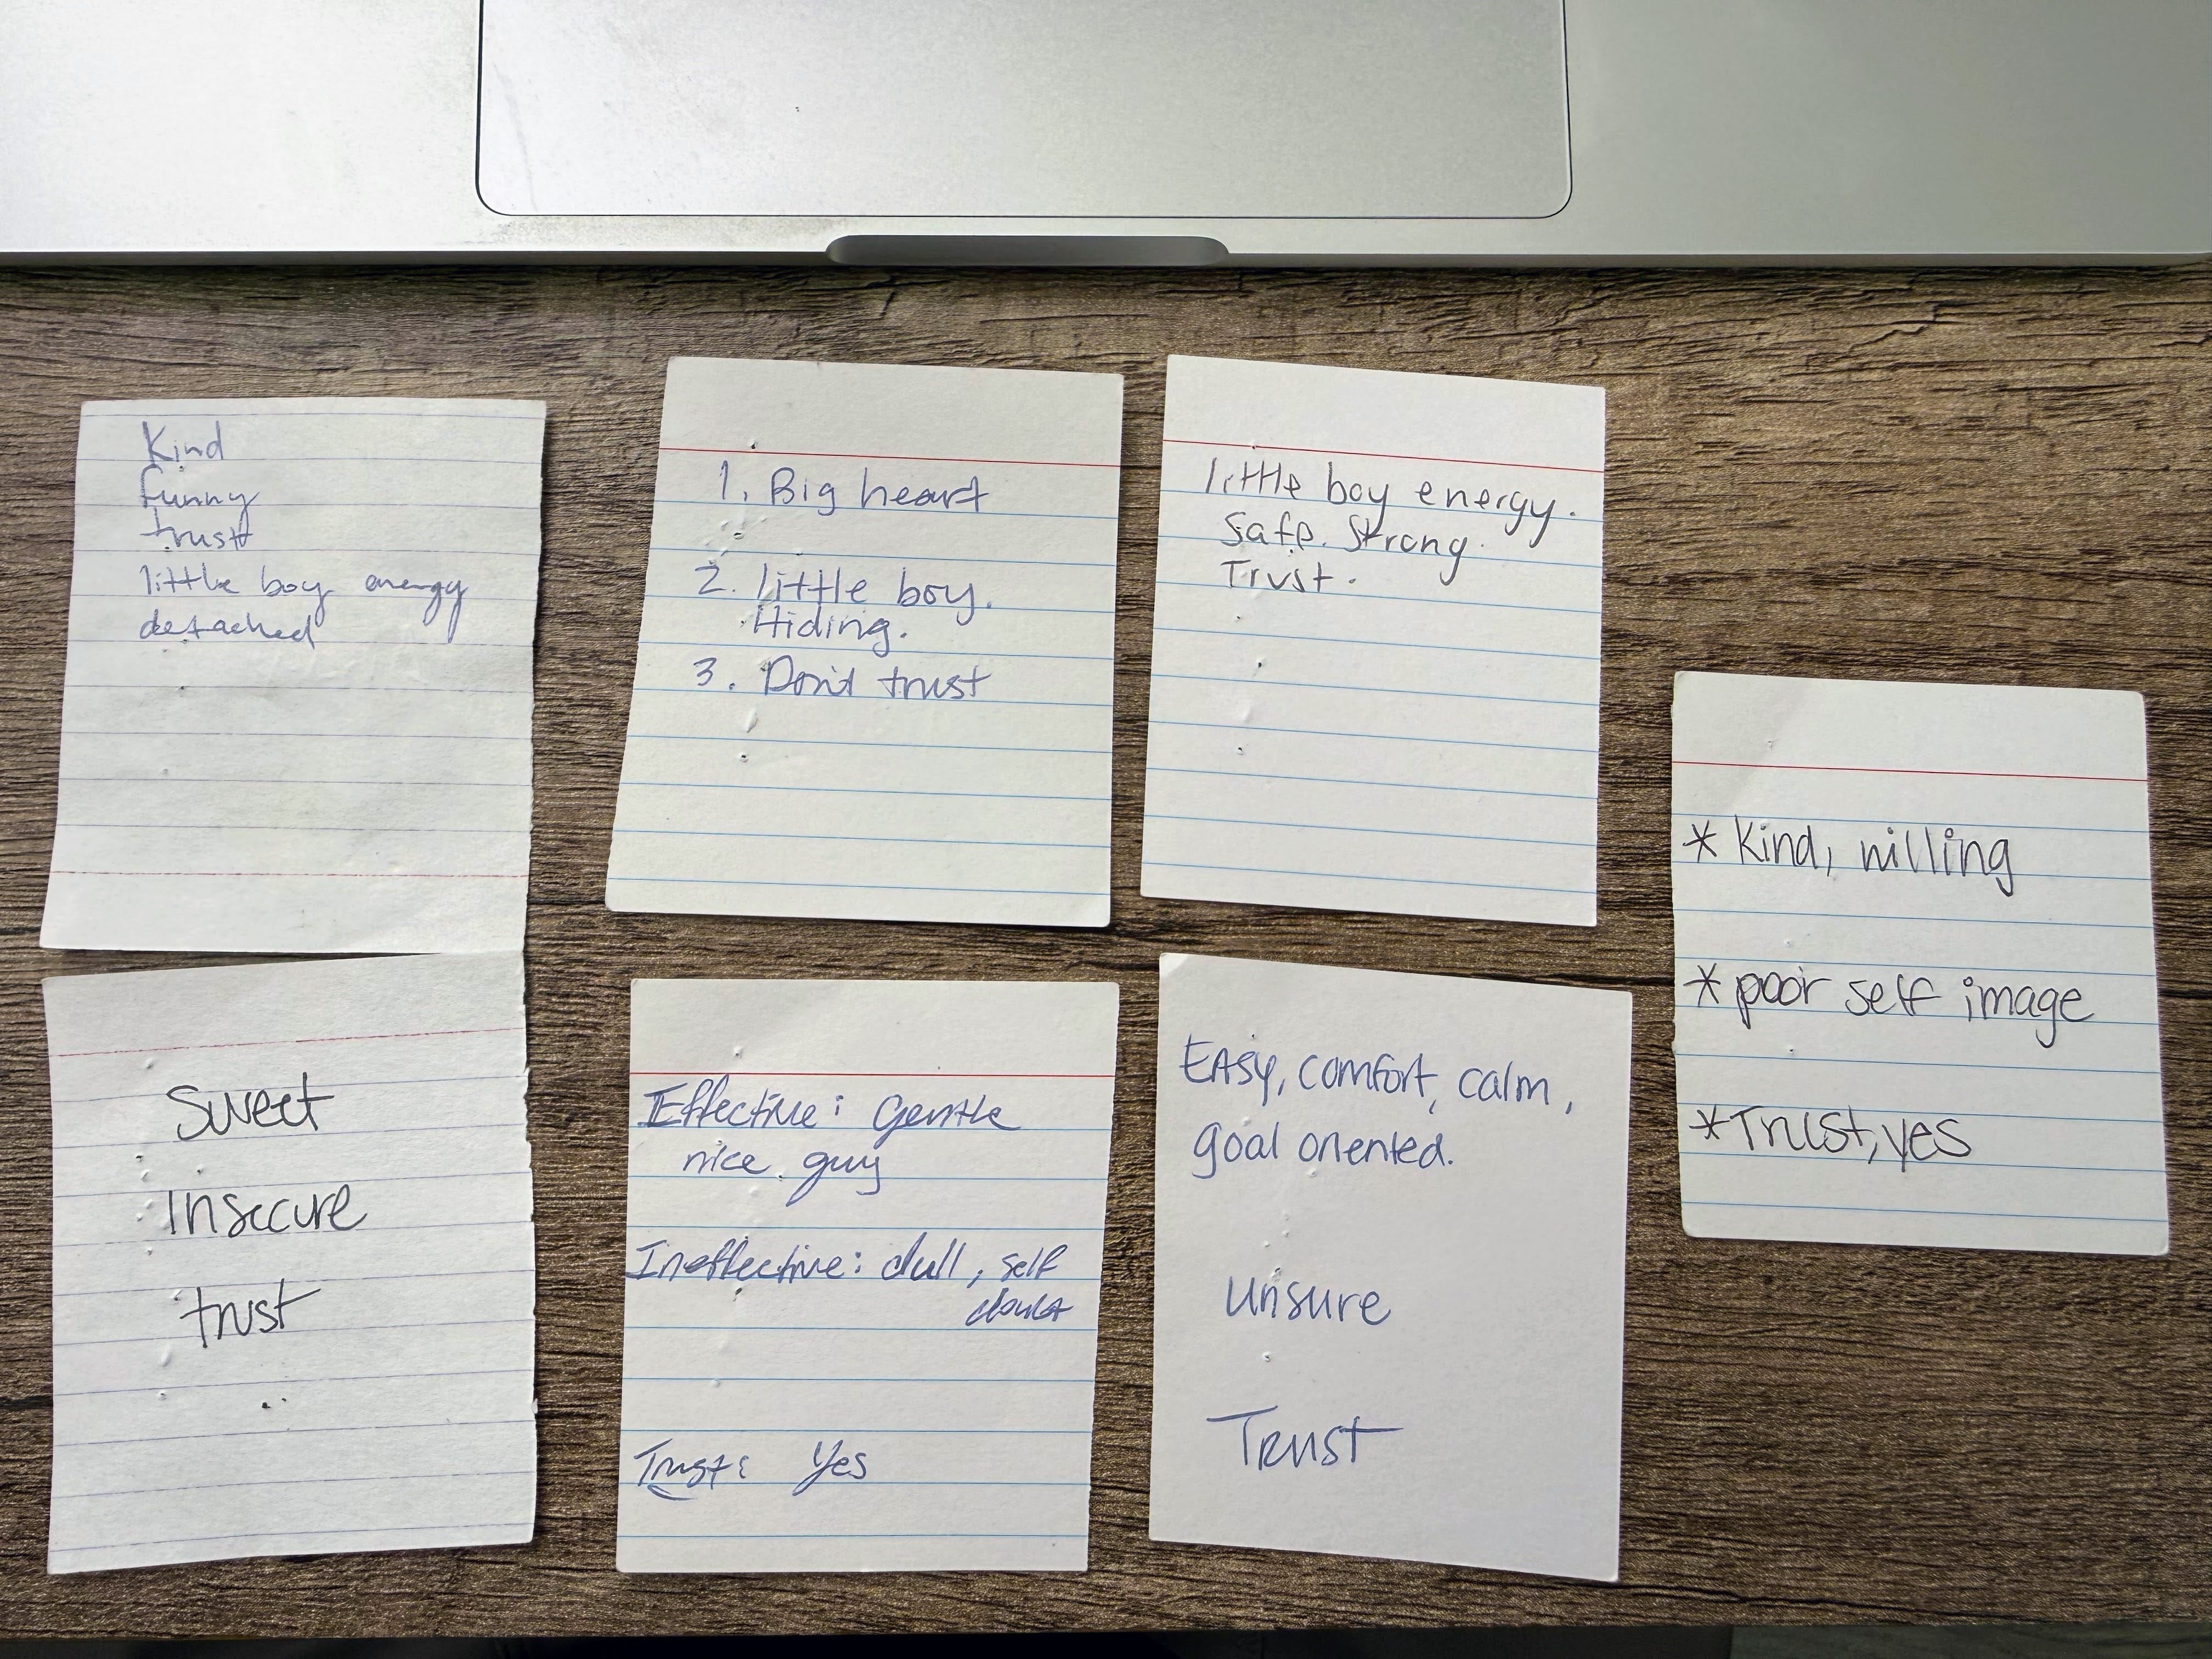 Kind
funny
trust
little boy energy
detached
1. Big heart
2. little boy.
Hiding.
3. Don't trust
little boy energy.
Safe. Strong.
Trust.
* Kind, willing
* poor self image
* Trust, yes
Sweet
Insecure
trust
Effective: Gentle
nice guy
Ineffective: dull, self
doubt
Trust: Yes
EASy, comfort, calm,
goal oriented.
Unsure
Trust